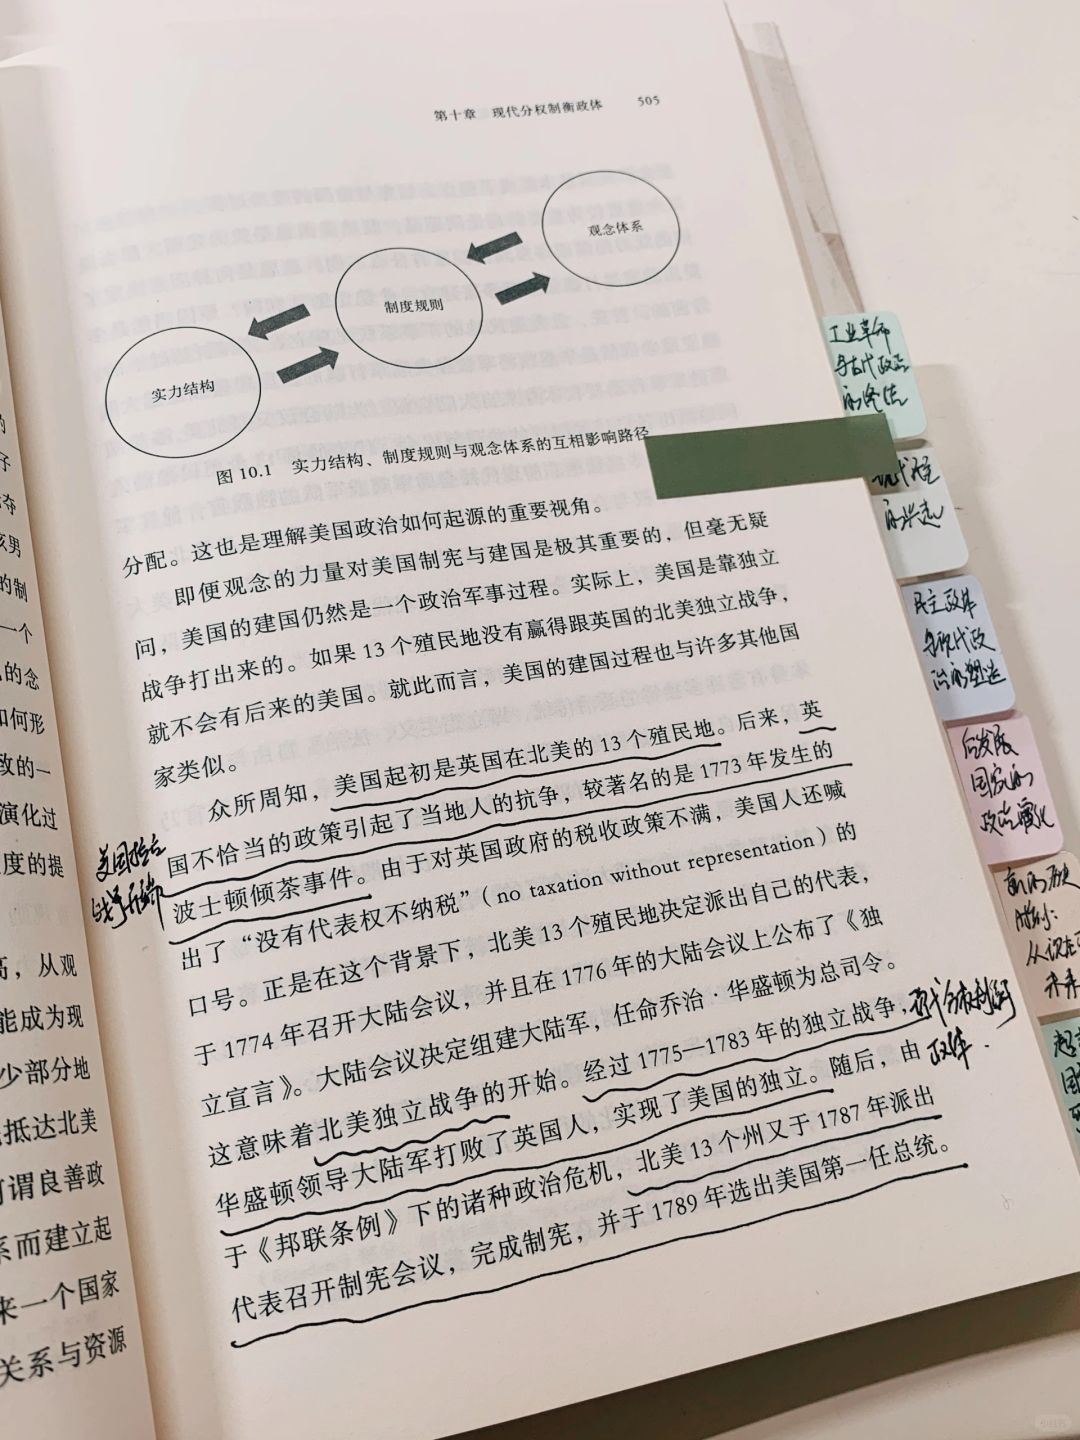 第十章 现代分权制衡政体 505
观念体系
制度规则
实力结构
图 10.1 实力结构、制度规则与观念体系的互相影响路径
分配。这也是理解美国政治如何起源的重要视角。
即便观念的力量对美国制宪与建国是极其重要的，但毫无疑
问，美国的建国仍然是一个政治军事过程。实际上，美国是靠独立
战争打出来的。如果 13 个殖民地没有赢得跟英国的北美独立战争，
就不会有后来的美国。就此而言，美国的建国过程也与许多其他国
家类似。
众所周知，美国起初是英国在北美的 13 个殖民地。后来，英
国不恰当的政策引起了当地人的抗争，较著名的是 1773 年发生的
波士顿倾茶事件。由于对英国政府的税收政策不满，美国人还喊
出了“没有代表权不纳税”（no taxation without representation）的
口号。正是在这个背景下，北美 13 个殖民地决定派出自己的代表，
于 1774 年召开大陆会议，并且在 1776 年的大陆会议上公布了《独
立宣言》。大陆会议决定组建大陆军，任命乔治·华盛顿为总司令。
这意味着北美独立战争的开始。经过 1775—1783 年的独立战争，
华盛顿领导大陆军打败了英国人，实现了美国的独立。随后，由
于《邦联条例》下的诸种政治危机，北美 13 个州又于 1787 年派出
代表召开制宪会议，完成制宪，并于 1789 年选出美国第一任总统。
美国独立
战争开端
现代分权制衡
政体.
工业革命
与古代政治
的终结
现代性
的兴起
民主政体
与现代政
治的塑造
后发展
国家的
政治演化
新的历史
从现在
未来
子
夺
亥男
的制
一个
的念
如何形
致的一
演化过
度的提
高，从观
能成为现
少部分地
抵达北美
可谓良善政
系而建立起
来一个国家
关系与资源
小红书